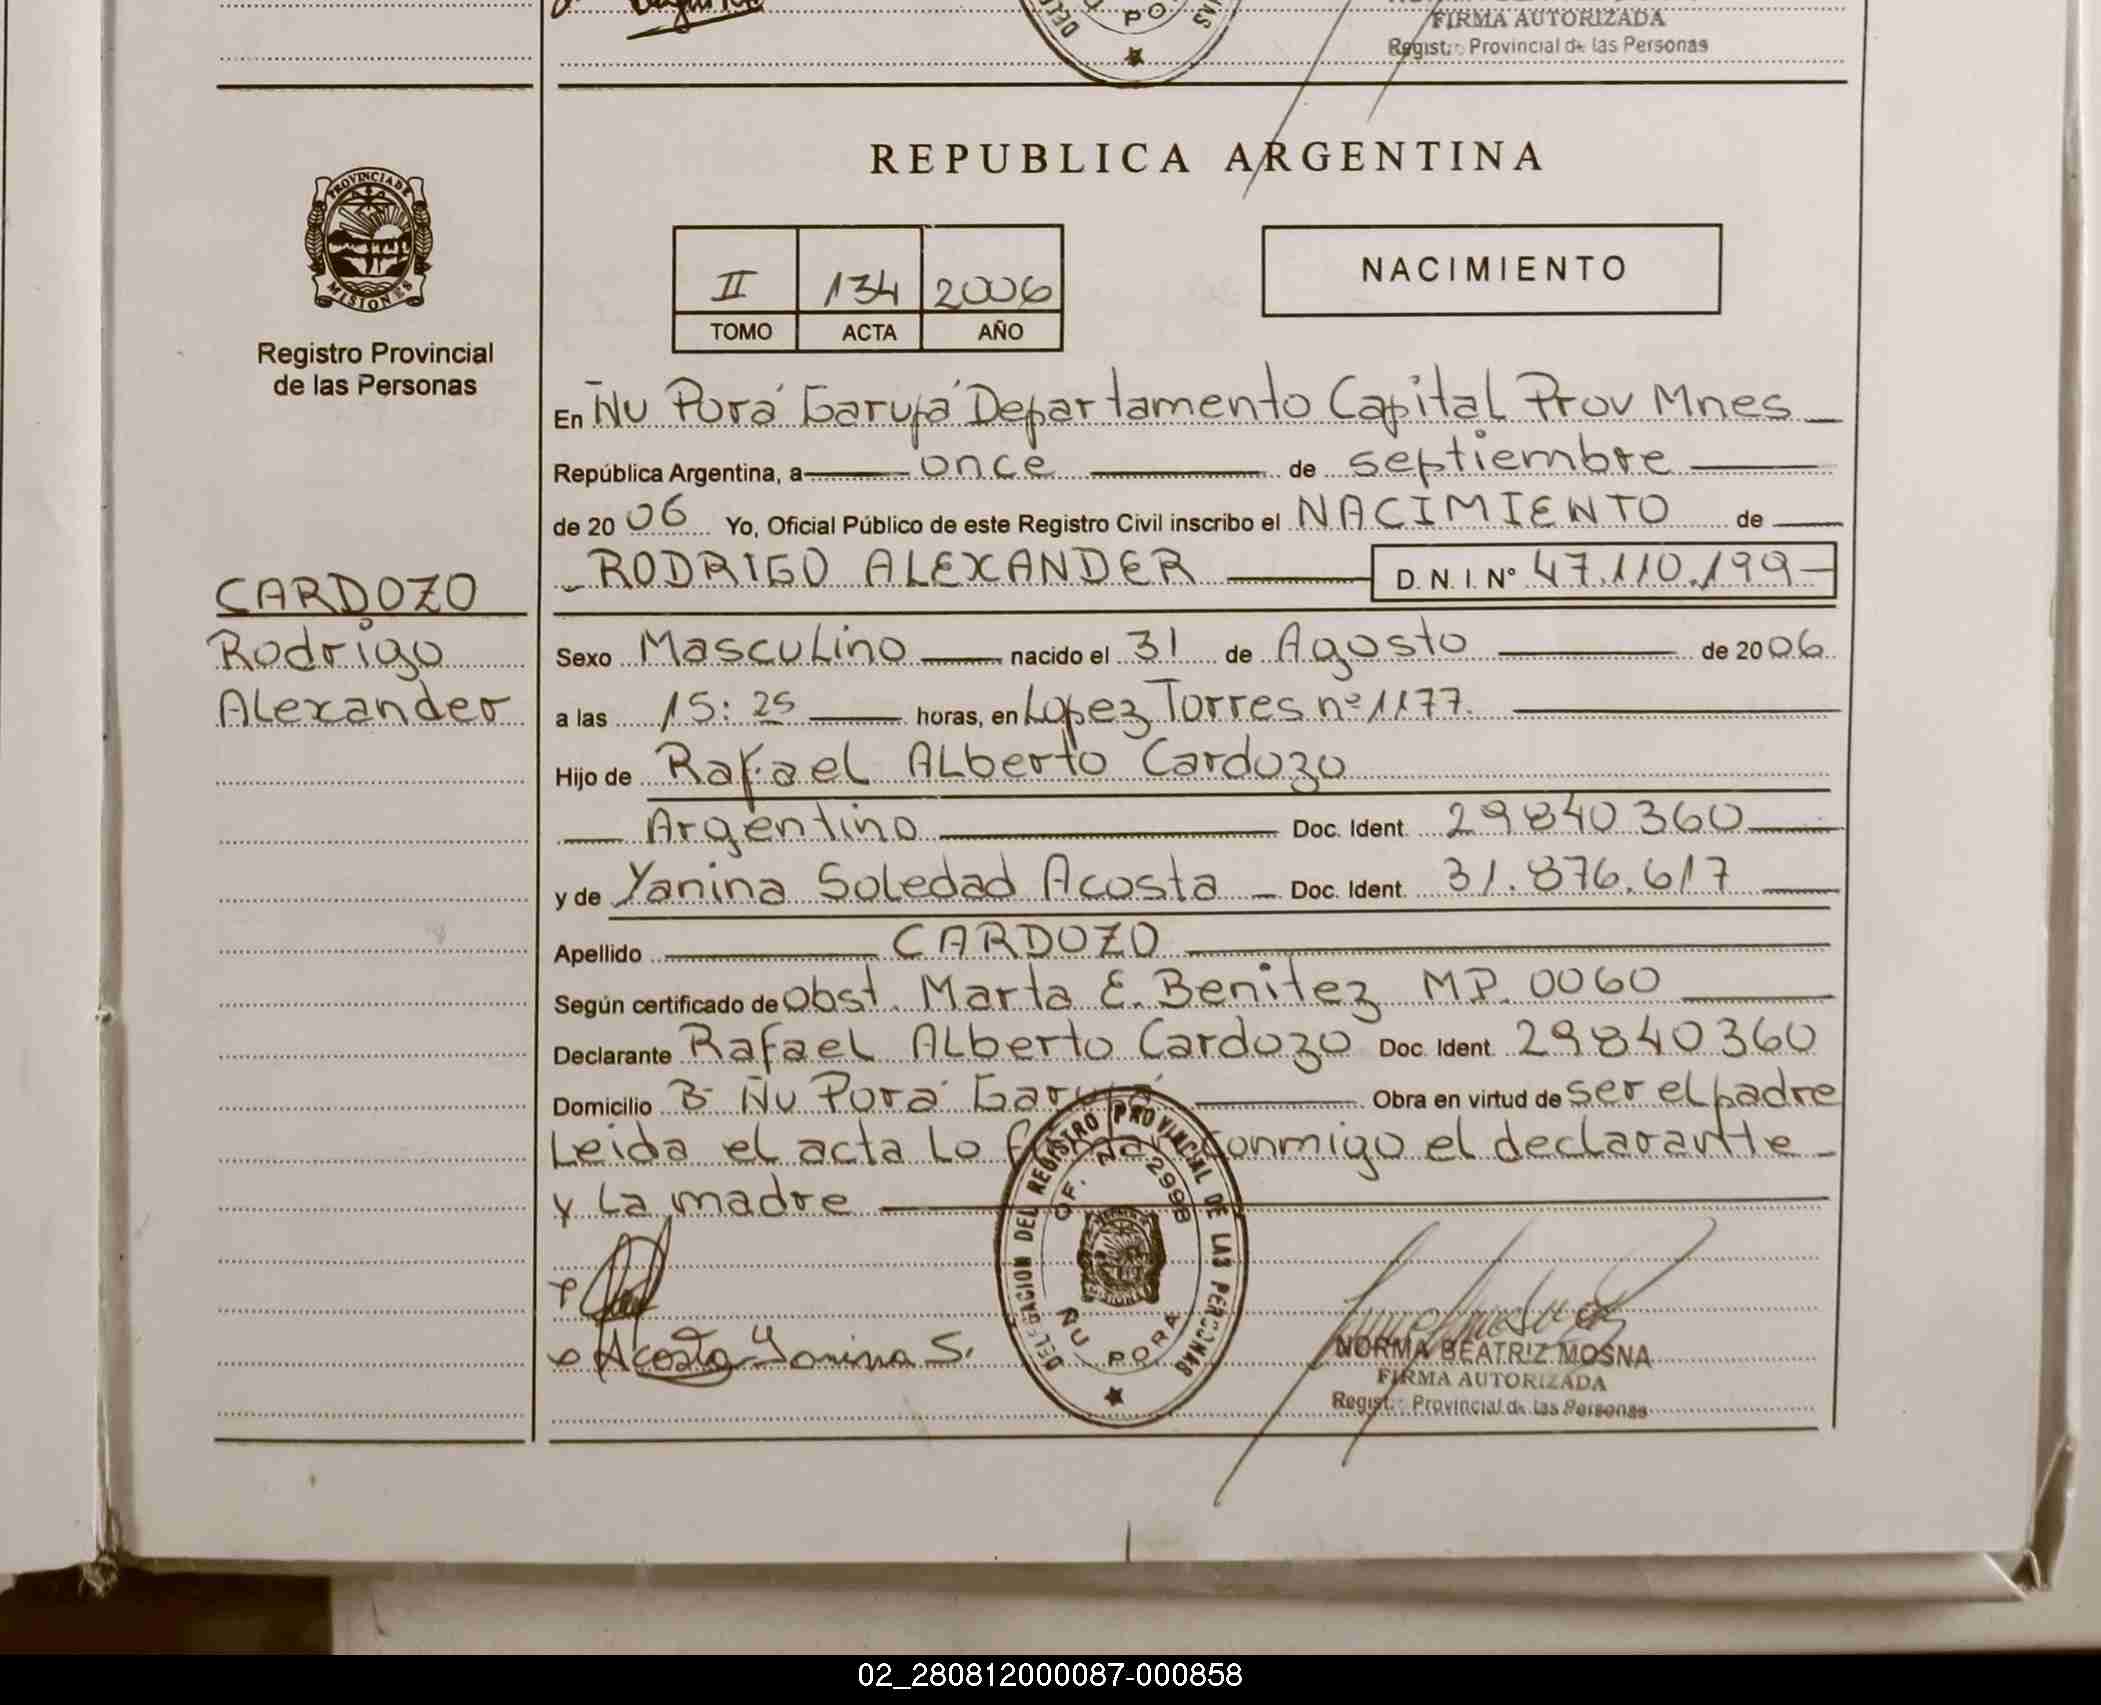 FIRMA AUTORIZADA
Regist. Provincial de las Personas
PO
REPUBLICA ARGENTINA
PROVINCIA DE
MISIONES
Registro Provincial
de las Personas
II 134 2006
TOMO ACTA AÑO
NACIMIENTO
En Ñu Porá Garupá Departamento Capital Prov Mnes
República Argentina, a once de septiembre
de 2006 Yo, Oficial Público de este Registro Civil inscribo el NACIMIENTO de
RODRIGO ALEXANDER D.N.I. Nº 47.110.199
CARDOZO
Rodrigo
Alexander
Sexo Masculino nacido el 31 de Agosto de 2006
a las 15:25 horas, en Lopez Torres nº 1177.
Hijo de Rafael Alberto Cardozo
Argentino Doc. Ident. 29840360
y de Yanina Soledad Acosta Doc. Ident. 31.876.617
Apellido CARDOZO
Según certificado de Obst. Marta E. Benitez MP. 0060
Declarante Rafael Alberto Cardozo Doc. Ident. 29840360
Domicilio Bº Ñu Porá Garupá Obra en virtud de ser el padre
Leida el acta lo conmigo el declarante
y la madre
DELEGACION DEL REGISTRO PROVINCIAL DE LAS PERSONAS
OF. 2998
ÑU PORA
Acosta Yanina S.
NORMA BEATRIZ MOSNA
FIRMA AUTORIZADA
Regist. Provincial de las Personas
02_280812000087-000858